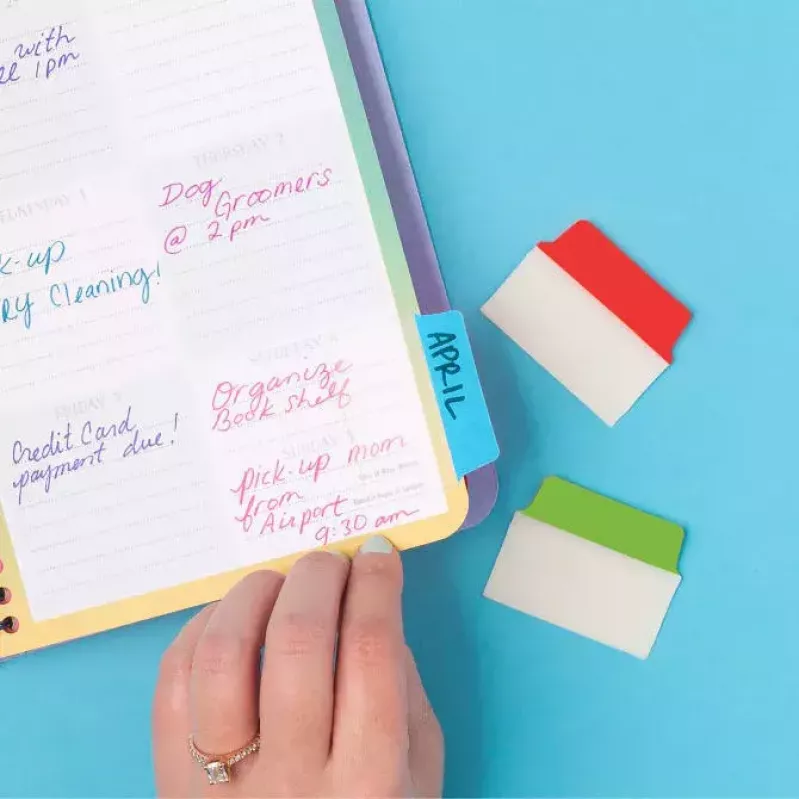 with
1pm
THURSDAY 2
Dog
Groomers
@ 2pm
WEDNESDAY 1
k-up
RY Cleaning!
APRIL
SATURDAY 4
Organize
Book shelf
FRIDAY 3
Credit Card
payment due!
SUNDAY 5
pick-up mom
from
Airport
9:30 am